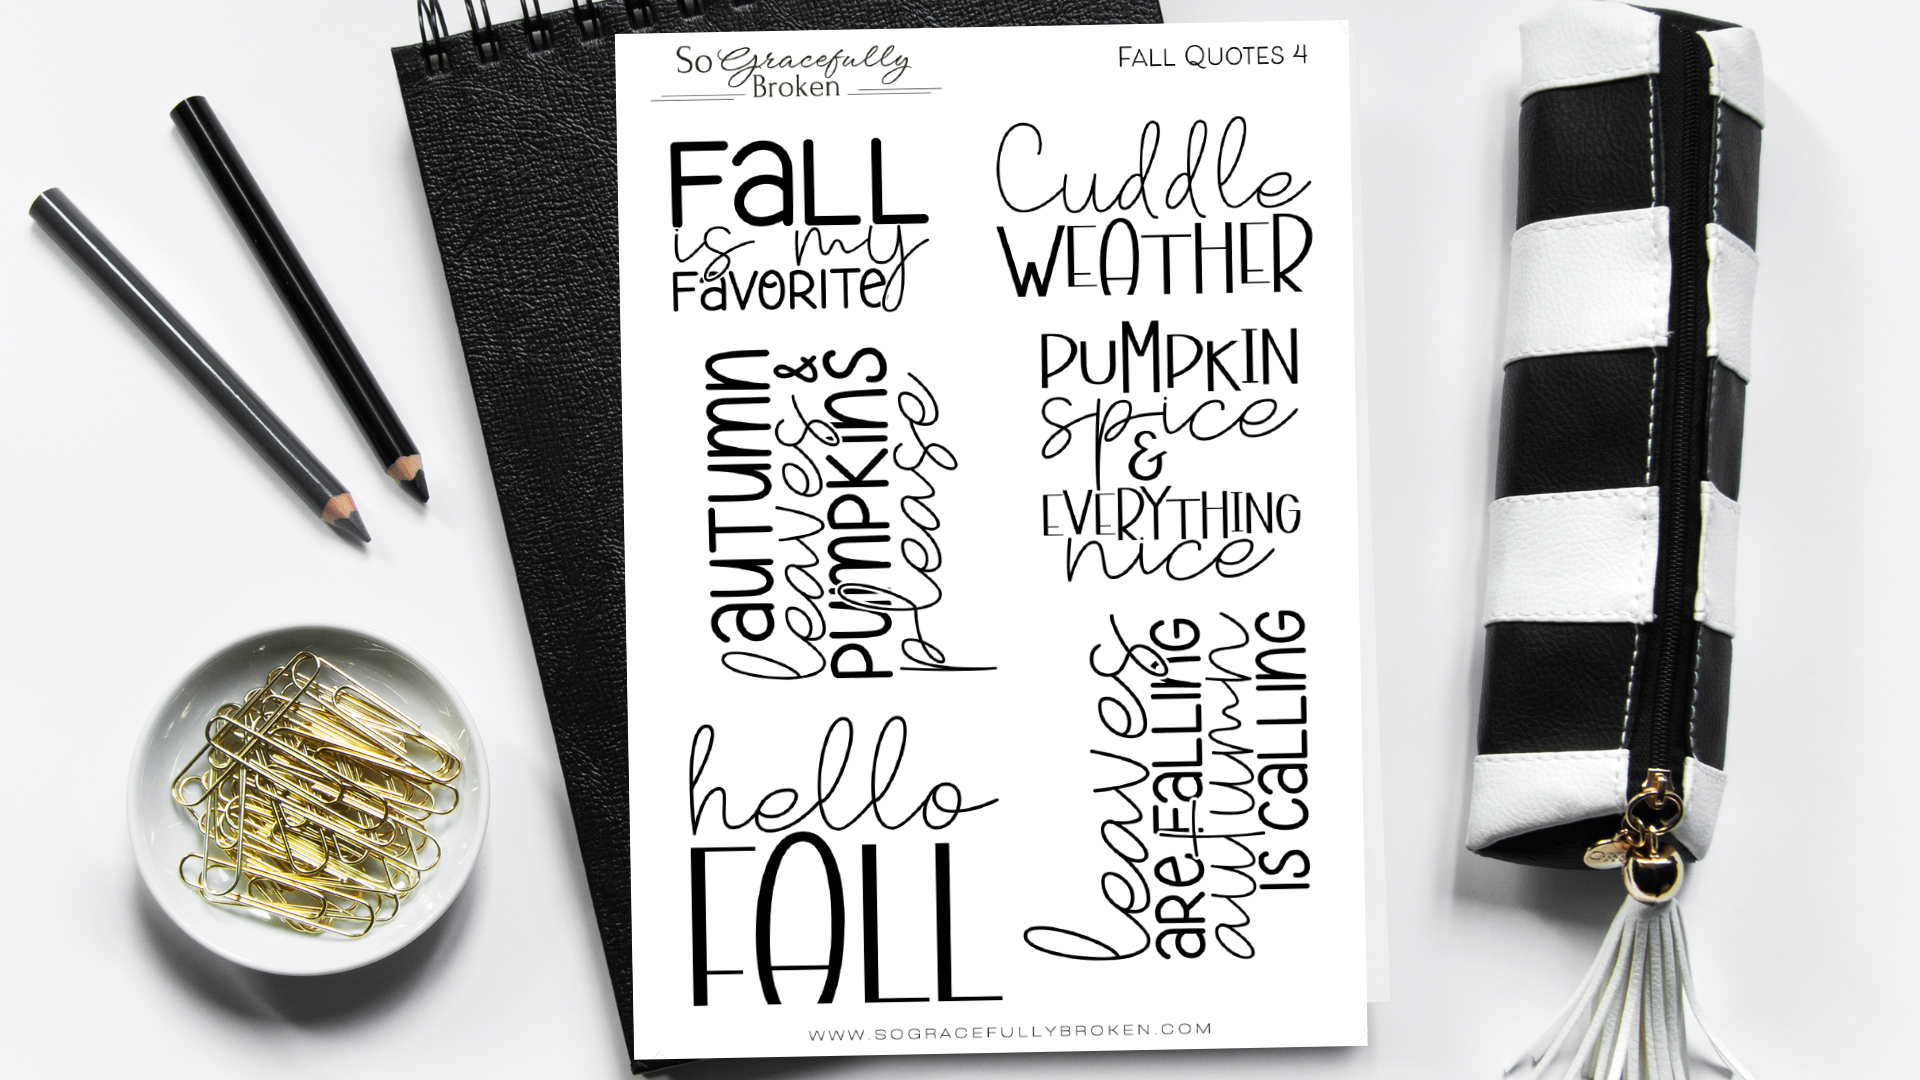 So Gracefully
Broken
FALL QUOTES 4
FaLL
is my
FaVORITe
Cuddle
WEATHER
aUTUMn
leaves &
PUMPKINS
please
PUMPKIN
spice
&
EVERYTHING
nice
hello
FALL
leaves
aRe FaLLING
autumn
IS CaLLING
WWW.SOGRACEFULLYBROKEN.COM